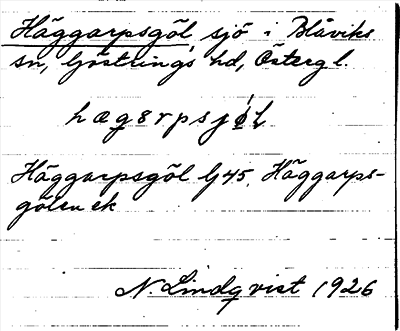 Häggarpsgöl, sjö i Blåviks
sn, Göstrings hd, Östergl.
hagerpsjöl
Häggarpsgöl G45, Häggarps-
gölen ek
N. Lindqvist 1926